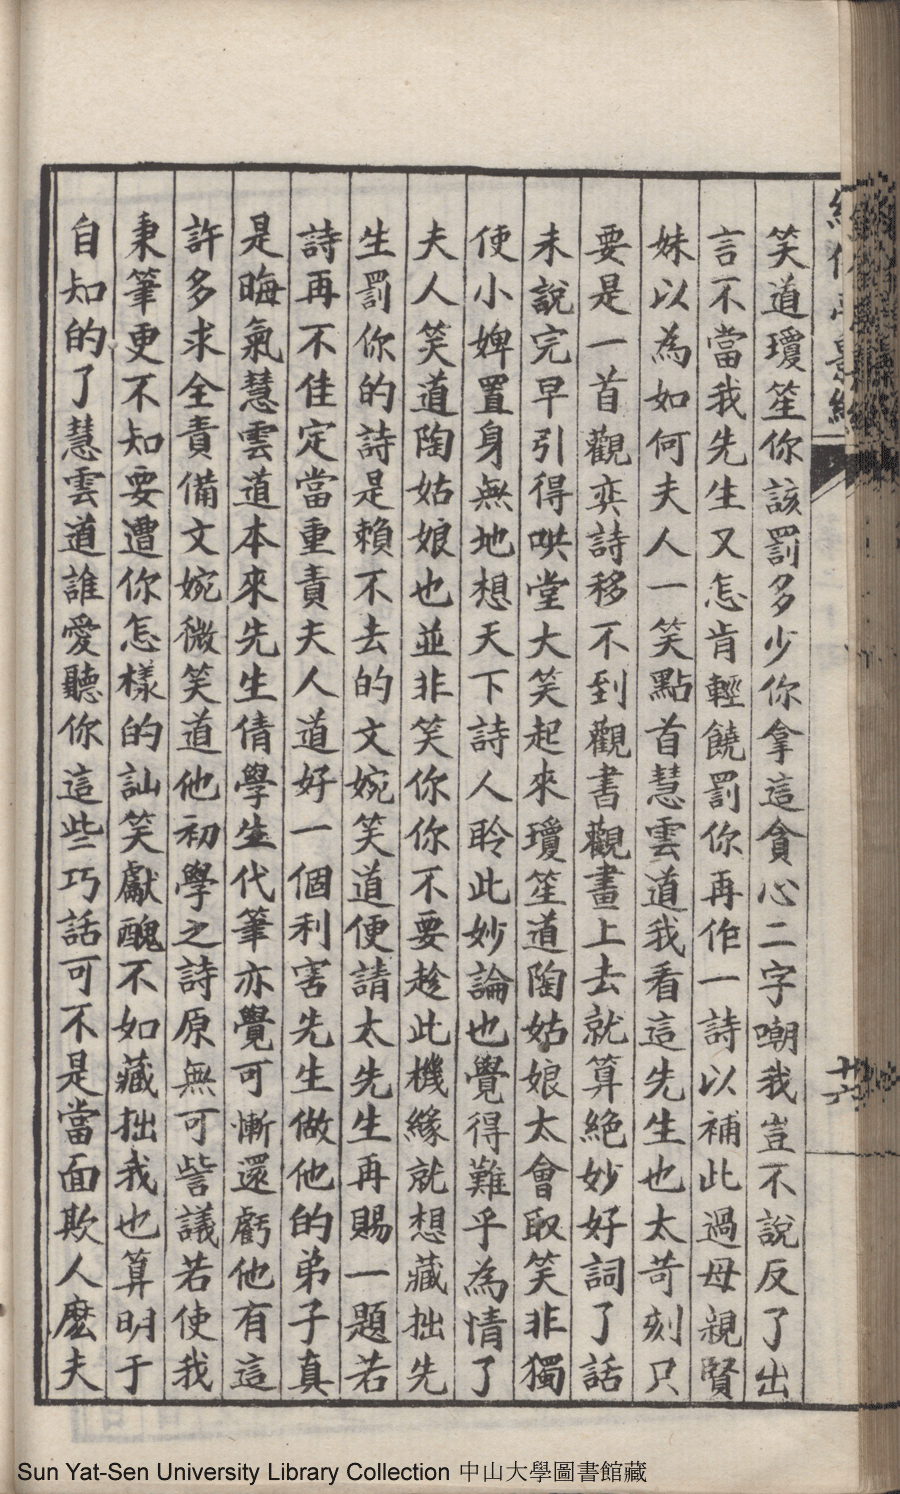 笑道瓊笙你該罰多少你拿這貪心二字嘲我豈不說反了出
言不當我先生又怎肯輕饒罰你再作一詩以補此過母親賢
妹以為如何夫人一笑點首慧雲道我看這先生也太苛刻只
要是一首觀弈詩移不到觀書觀畫上去就算絕妙好詞了話
未說完早引得哄堂大笑起來瓊笙道陶姑娘太會取笑非獨
使小婢置身無地想天下詩人聆此妙論也覺得難乎為情了
夫人笑道陶姑娘也並非笑你你不要趁此機緣就想藏拙先
生罰你的詩是賴不去的文婉笑道便請太先生再賜一題若
詩再不佳定當重責夫人道好一個利害先生做他的弟子真
是晦氣慧雲道本來先生倩學生代筆亦覺可慚還虧他有這
許多求全責備文婉微笑道他初學之詩原無可訾議若使我
秉筆更不知要遭你怎樣的訕笑獻醜不如藏拙我也算明于
自知的了慧雲道誰愛聽你這些巧話可不是當面欺人麼夫
廿六
Sun Yat-Sen University Library Collection 中山大學圖書館藏